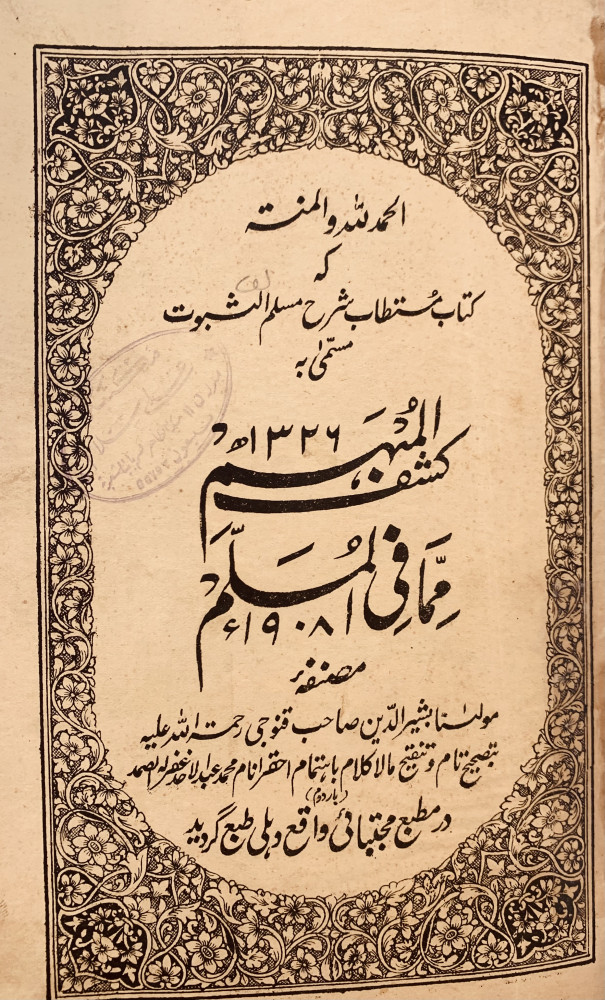 الحمد لله والمنتہ
کہ
کتاب مستطاب شرح مسلم الثبوت
مسمّٰی بہ
کشف المُبْہَم
۱۳۲۶ھ
مِمَّا فِی المُسَلَّم
۱۹۰۸ء
مصنفۂ
مولٰنا بشیر الدین صاحب قنوجی رحمۃ اللہ علیہ
بتصحیح تام و تنقیح مالا کلام باہتمام احقر انام محمد عبدالاحد غفرلہ الصمد
(بار دوم)
در مطبع مجتبائی واقع دہلی طبع گردید